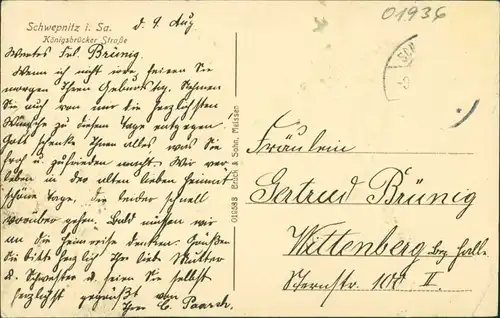 Schwepnitz i. Sa.
Königsbrücker Straße
d. 9. Aug
01936
Wertes Frl. Brünig.
Wenn ich nicht irre, feiern Sie
morgen Ihren Geburtstag. Nehmen
Sie auch von mir die herzlichsten
Wünsche zu diesem Tage entgegen.
Gott schenke Ihnen alles was Sie
froh u. zufrieden macht. Wir ver
leben in der alten lieben Heimat
schöne Tage, die leider schnell
vorüber gehen. Bald müssen wir
an die Heimreise denken. Grüßen
Sie bitte herzlich Ihre liebe Mutter
u. Schwester u. seien Sie selbst
herzlichst gegrüßt von
Ihrer C. Paasch.
019583 Brück & Sohn, Meissen
Fräulein
Gertrud Brünig
Wittenberg Bez. Halle
Sternstr. 10 II.